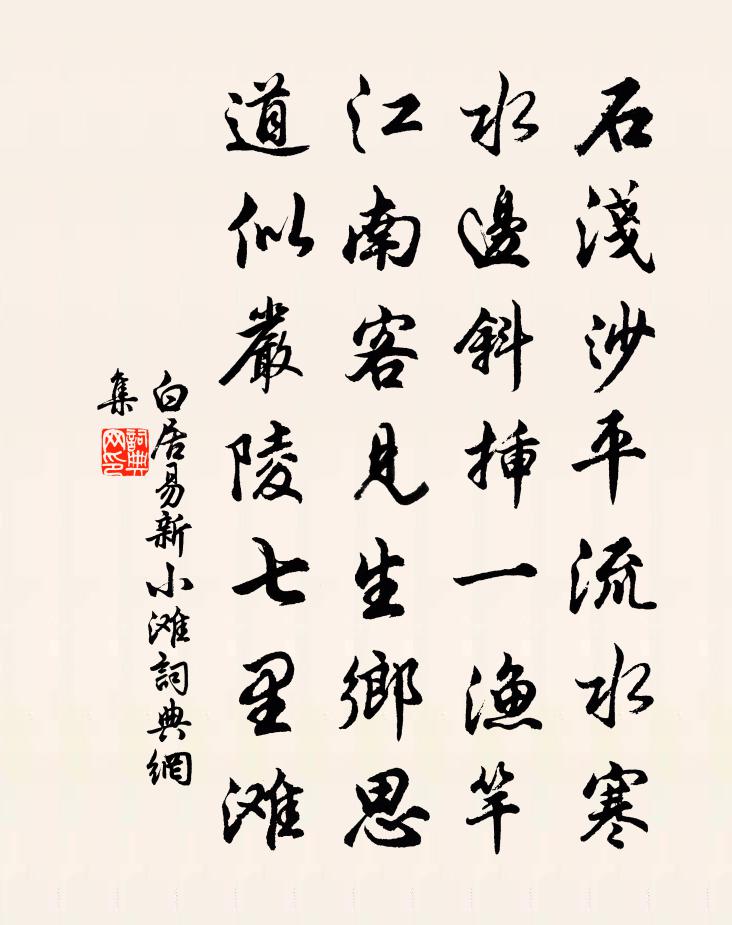 石淺沙平流水寒
水邊斜插一漁竿
江南客見生鄉思
道似嚴陵七里滩
白居易新小滩詞典網
集
詞典
网印